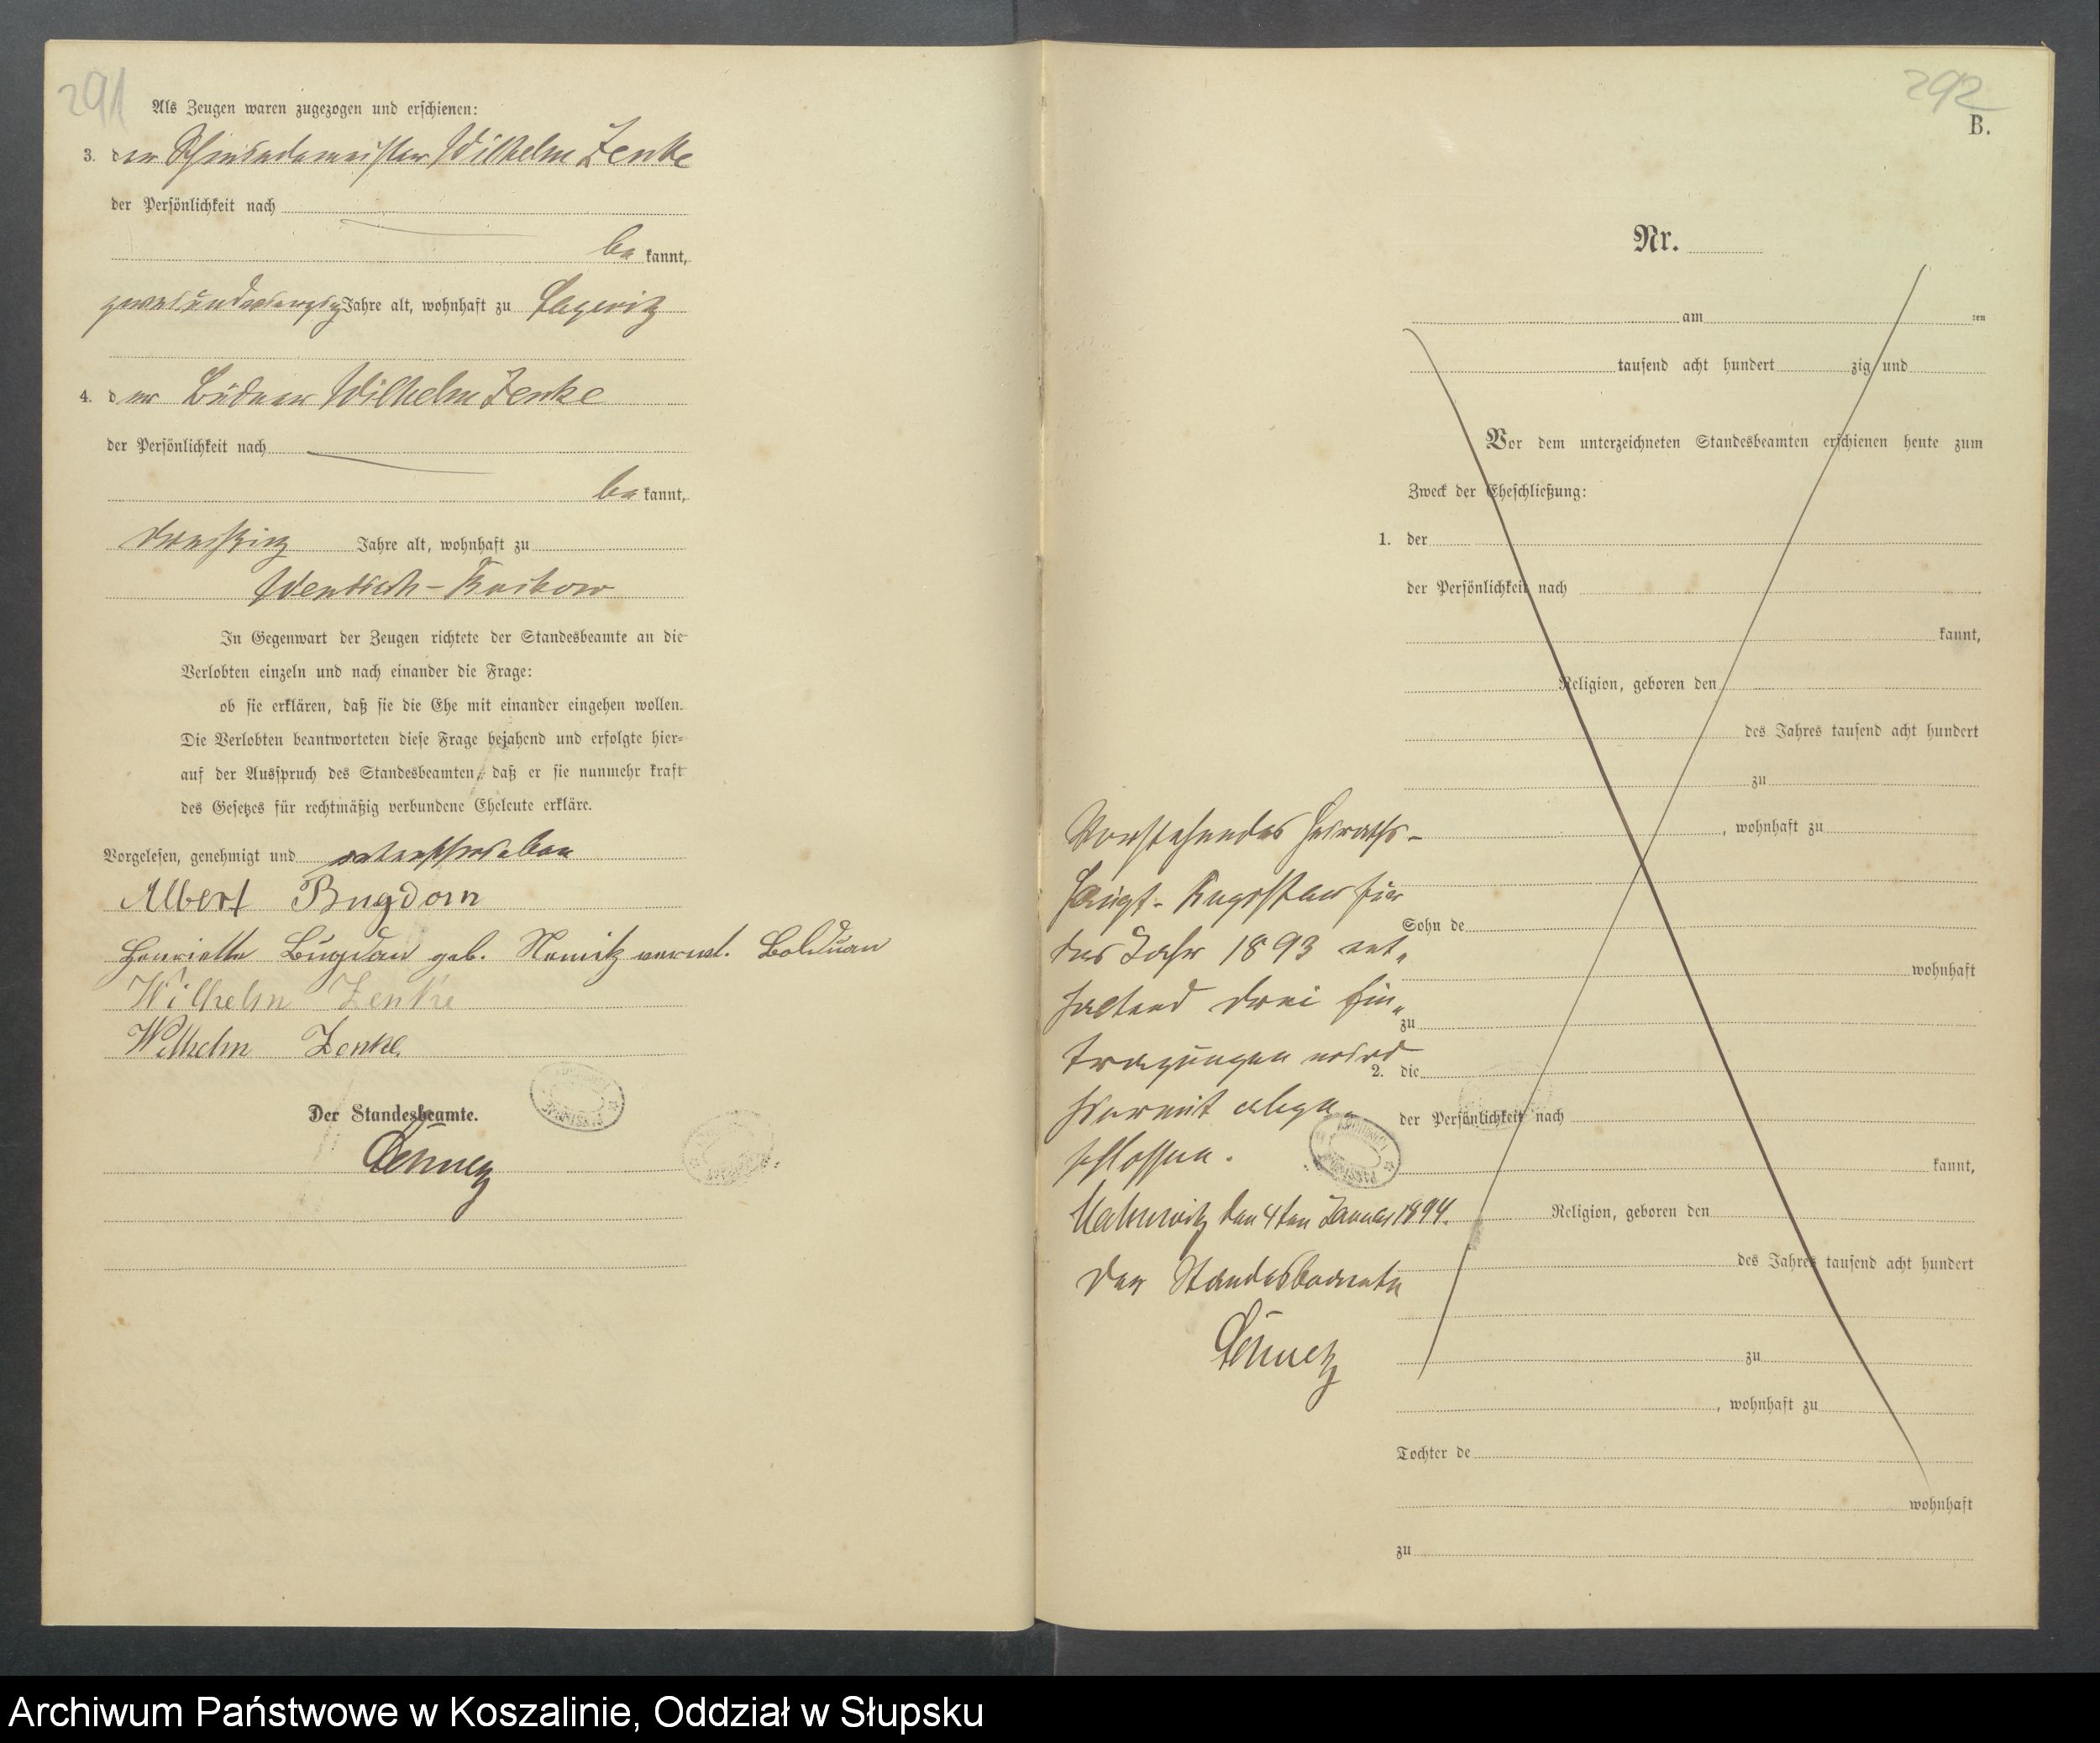 291
Als Zeugen waren zugezogen und erschienen:
3. der Schmiedemeister Wilhelm Zenke
der Persönlichkeit nach
be kannt,
zweiundvierzig Jahre alt, wohnhaft zu
4. der Büdner Wilhelm Zenke
der Persönlichkeit nach
be kannt,
dreißig Jahre alt, wohnhaft zu
Wendisch-
In Gegenwart der Zeugen richtete der Standesbeamte an die
Verlobten einzeln und nach einander die Frage:
ob sie erklären, daß sie die Ehe mit einander eingehen wollen.
Die Verlobten beantworteten diese Frage bejahend und erfolgte hier-
auf der Ausspruch des Standesbeamten, daß er sie nunmehr kraft
des Gesetzes für rechtmäßig verbundene Eheleute erkläre.
Vorgelesen, genehmigt und unterschrieben
Albert Bugdorn
Henriette Bugdan geb. Nemitz verwt. Bolduan
Wilhelm Zenke
Wilhelm Zenke
Der Standesbeamte.
292
B.
Nr.
am ten
tausend acht hundert zig und
Vor dem unterzeichneten Standesbeamten erschienen heute zum
Zweck der Eheschließung:
1. der
der Persönlichkeit nach
kannt,
Religion, geboren den
des Jahres tausend acht hundert
zu
, wohnhaft zu
Sohn de
wohnhaft
zu
2. die
der Persönlichkeit nach
kannt,
Religion, geboren den
des Jahres tausend acht hundert
zu
, wohnhaft zu
Tochter de
wohnhaft
zu
Vorstehendes Heiraths-
Haupt-Register für
das Jahr 1893 ent-
haltend drei Ein-
tragungen wird
hiermit abge-
schlossen.
den 4ten Januar 1894.
Der Standesbeamte
Archiwum Państwowe w Koszalinie, Oddział w Słupsku